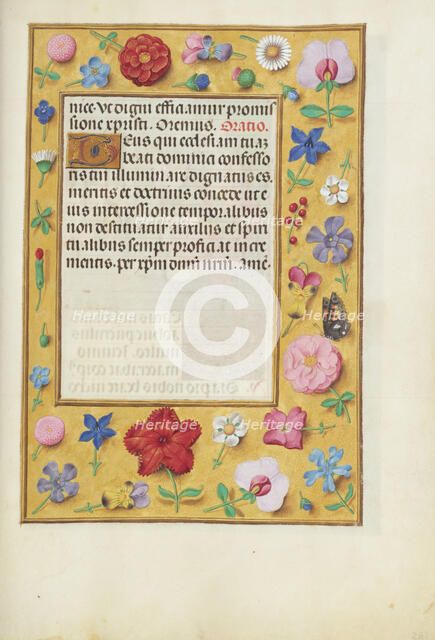 nice. Vt digni efficiamur promis
sione xpristi. Oremus. Oratio.
Deus qui ecclesiam tuā
beati dominici confesso
ris tui illuminare dignatus es
meritis et doctrinis concede ut e
ius intercessione temporalibus
non destituatur auxiliis et spiri
tualibus semper proficiat in cre
mentis. per xp̄m dn̄m nr̄m. amē.
Heritage
Heritage
Heritage
Heritage
Heritage
Heritage
Heritage
Heritage
Heritage